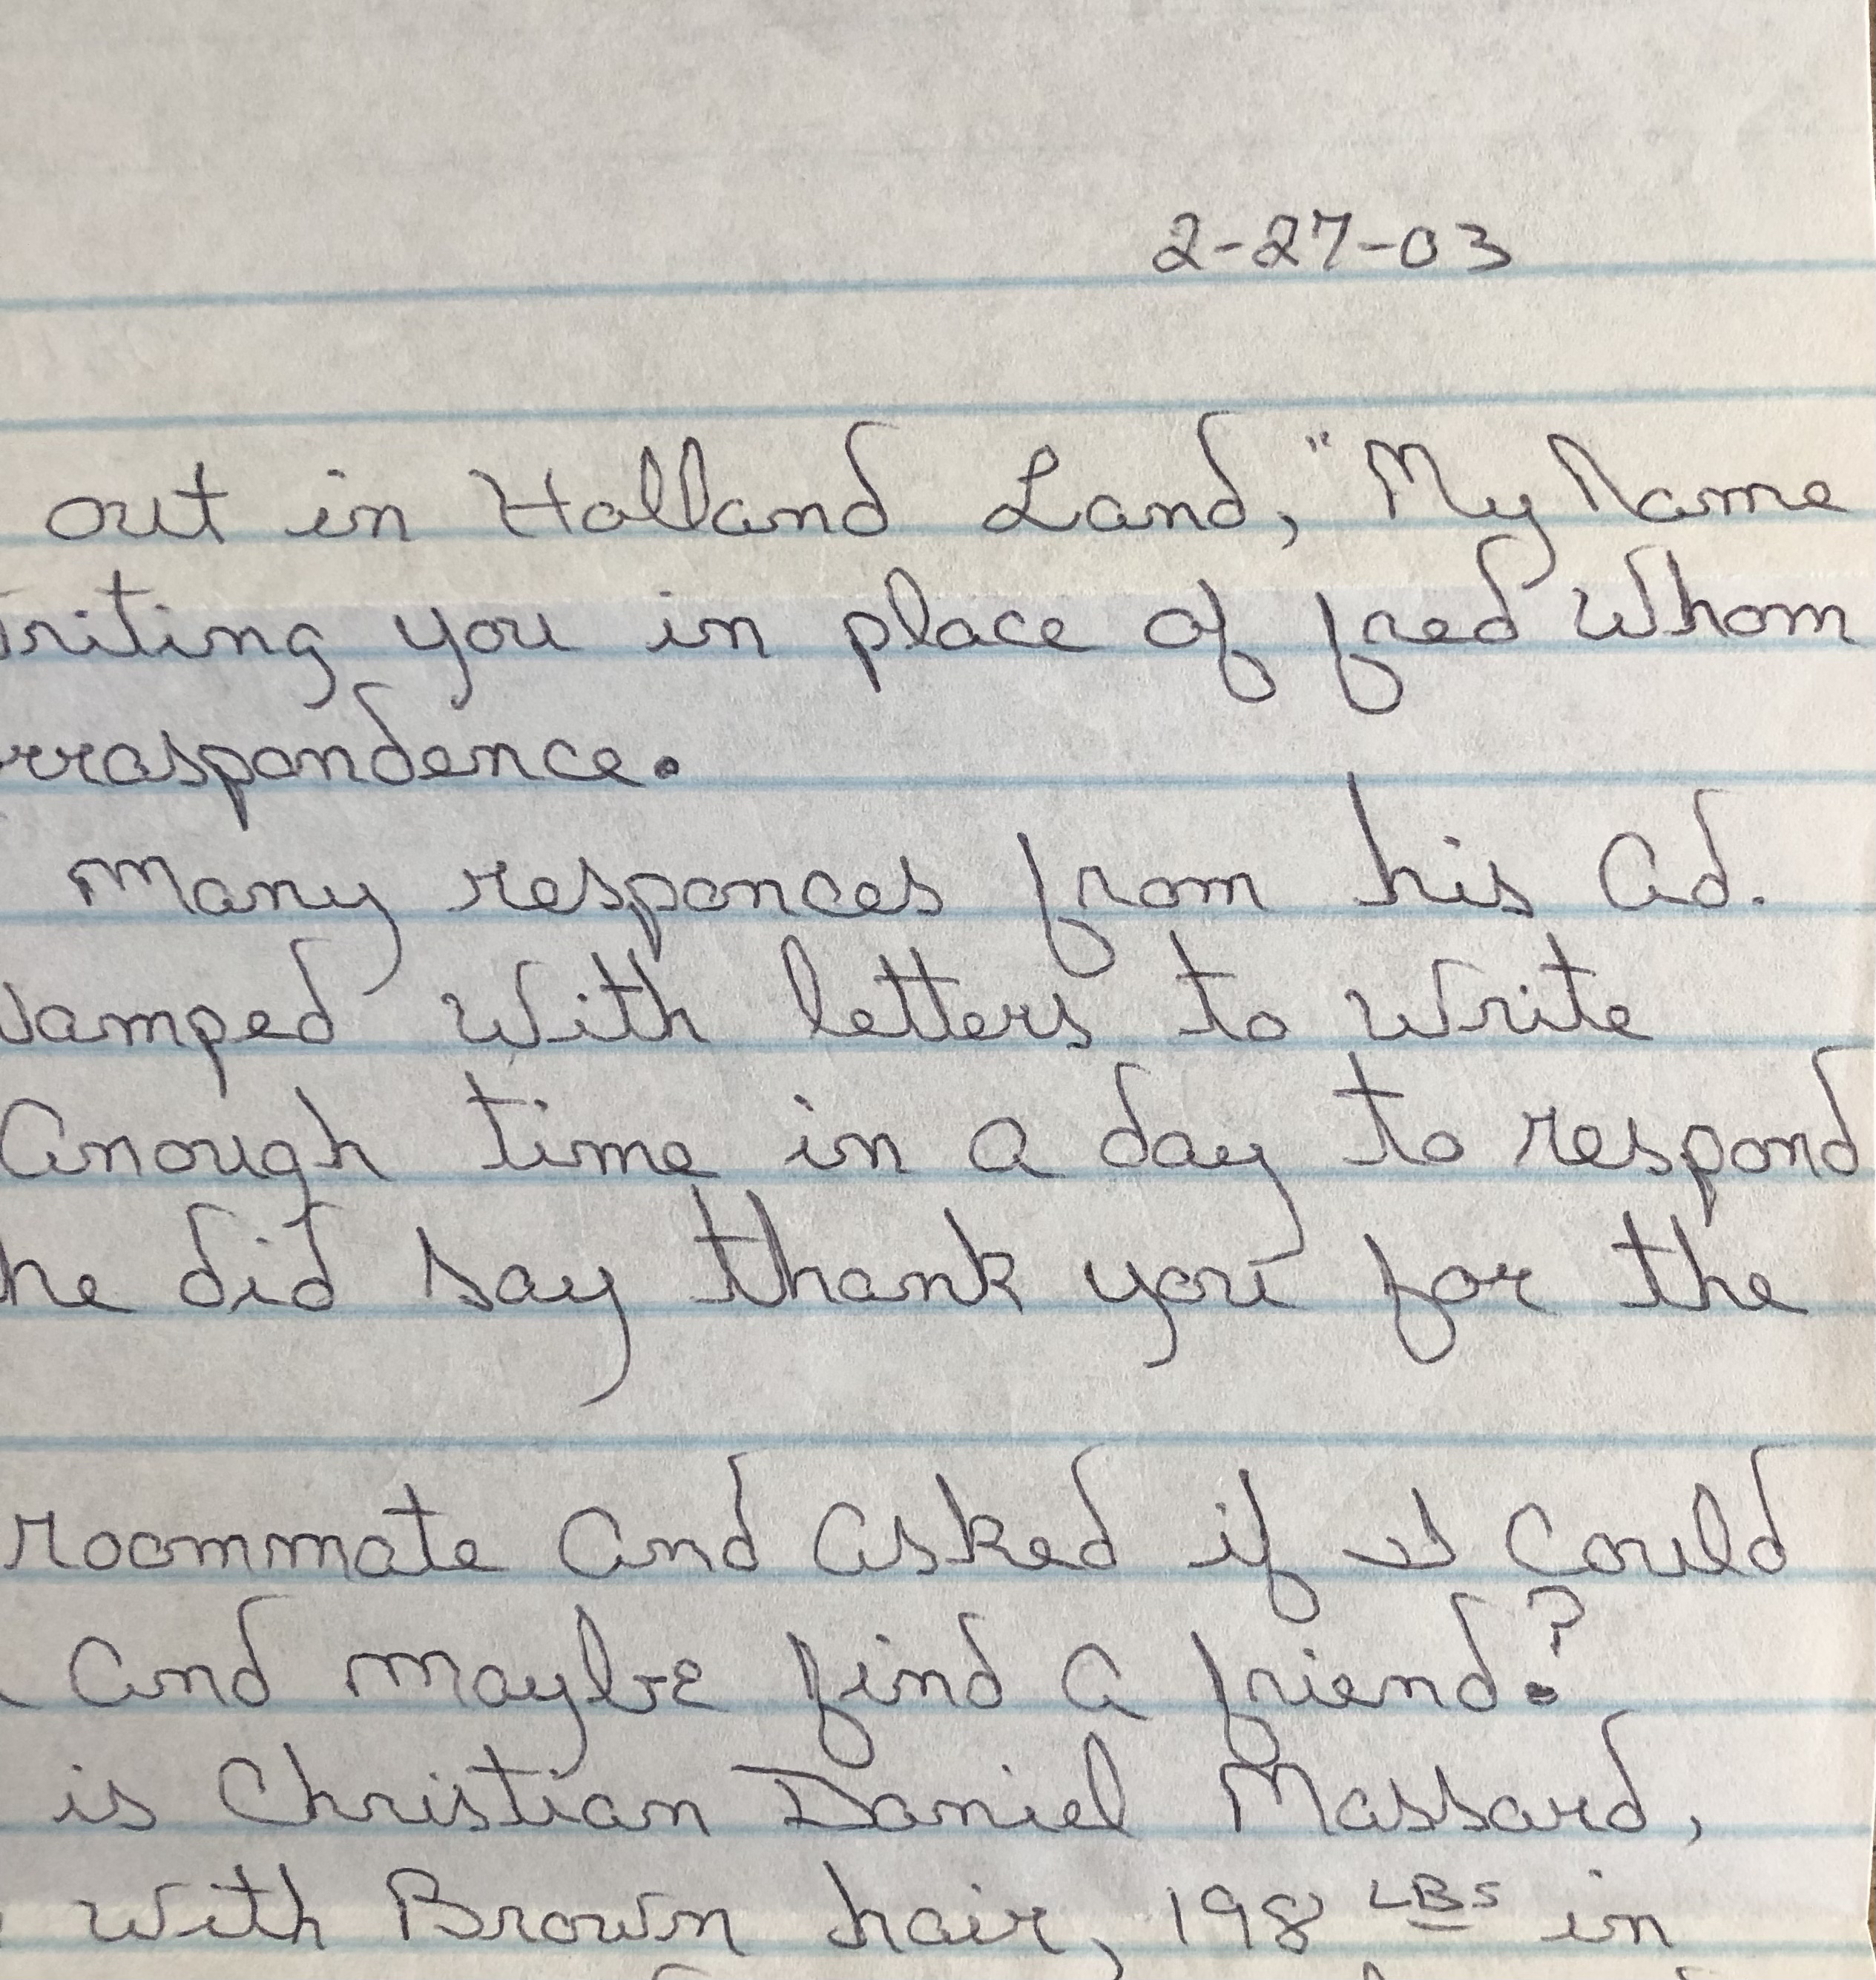 2-27-03
out in Holland Land, "My Name
riting you in place of fred whom
rraspondence.
many responces from his ad.
amped with letters to write
anough time in a day to respond
he did say thank you for the
roommate and asked if I could
and maybe find a friend?
is Christian Daniel Massard,
with Brown hair, 198 LBS in